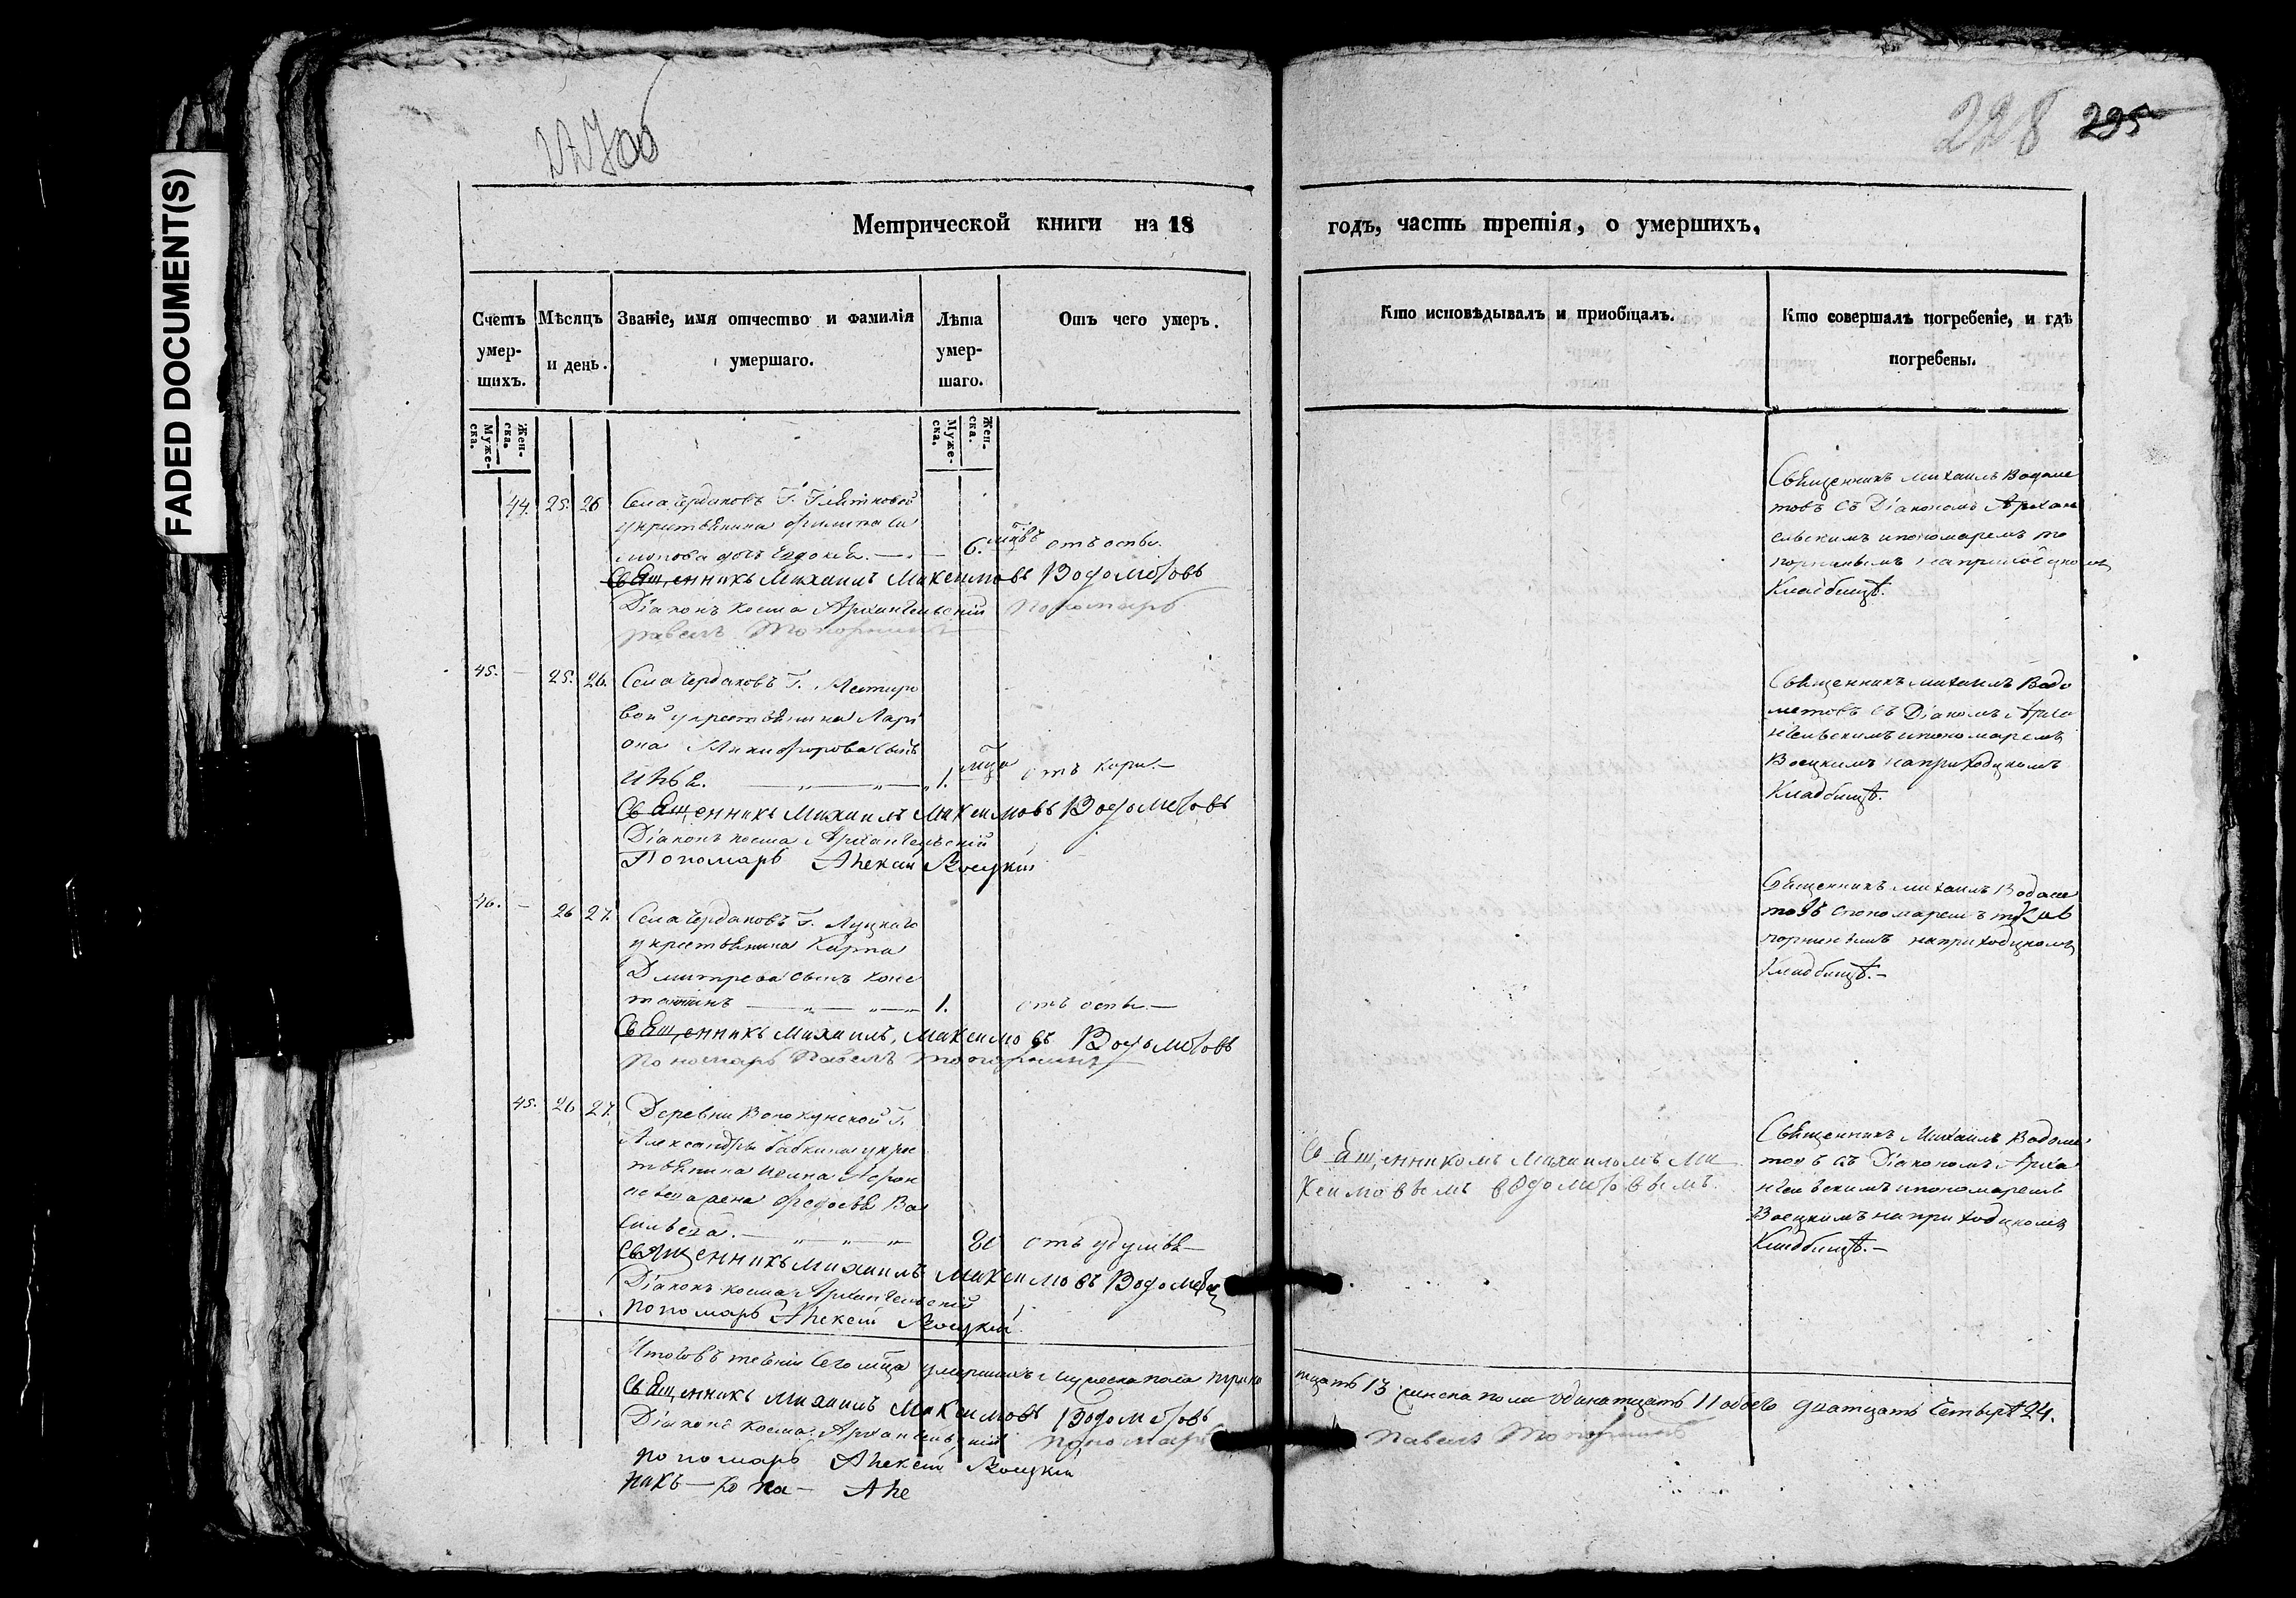 FADED DOCUMENT(S)
228 295
Метрической книги на 18
годъ, часть третія, о умершихъ.
Счетъ умер-шихъ.
Мѣсяцъ и день.
Званіе, имя отчество и фамилія умершаго.
Лѣта умер-шаго.
Отъ чего умеръ.
Кто исповѣдывалъ и пріобщалъ.
Кто совершалъ погребеніе, и гдѣ погребены.
Муже-ска.
Жен-ска.
Муже-ска.
Жен-ска.
44. 25. 26 Села Чердаковъ Г.
укрестьянина Филипа
дочь Евдокия. — 6. отъ оспы.
Священникъ Михаилъ Максимовъ Водометовъ
Діаконъ Косма Архангельскій Пономарь
Павелъ Топорнинъ
Священникъ Михаилъ Водоме
товъ съ Діакономъ Архан
ельскимъ ипономаремъ то
порнинымъ наприходцкомъ
Кладбищѣ.
45. — 25. 26. Села Чердаковъ Г.
вой укрестьянина Лари
она Никифорова сынъ
1. мца отъ кори. —
Священникъ Михаилъ Максимовъ Водометовъ
Діаконъ Косма Архангельскій
Пономарь Алексій Воецкій
Священникъ михаилъ Водо
метовъ съ Діакомъ Арха
нгельскимъ ипономаремъ
Воецкимъ наприходцкомъ
Кладбищѣ.
46. — 26 27. Села Чердаковъ Г. Луцкаго
укрестьянина Карпа
Дмитрева сынъ Конс
тантинъ — 1. отъ оспы —
Священникъ Михаилъ, Максимовъ Водометовъ
Пономарь Павелъ Топорнинъ
Священникъ михаилъ Водоме
товъ спономаремъ
порнинымъ наприходцкомъ
Кладбищѣ. —
45. 26 27. Деревни
Александры Бабкина укре
стьянина Ивана Афон
асьева жена Федосья Ва
сильева. — отъ удушья —
Священникъ Михаилъ Максимовъ Водометовъ
Діаконъ Косма Архангельскій
пономарь Алексій Воецкій
Священникомъ Михаиломъ Ма
ксимовымъ Водометовымъ.
Священникъ Михаилъ Водоме
товъ съ Діакономъ Арха
нгельскимъ ипономаремъ
Воецкимъ наприходцкомъ
Кладбищѣ. —
Итого въ теченіи сего мца умершихъ мужеска пола трина
тцать 13 женска пола одинатцать 11 обоего дватцать четыре 24.
Священникъ Михаилъ Максимовъ Водометовъ
Діаконъ Косма Архангельскій Пономарь Павелъ Топорнинъ
пономарь Алексій Воецкій